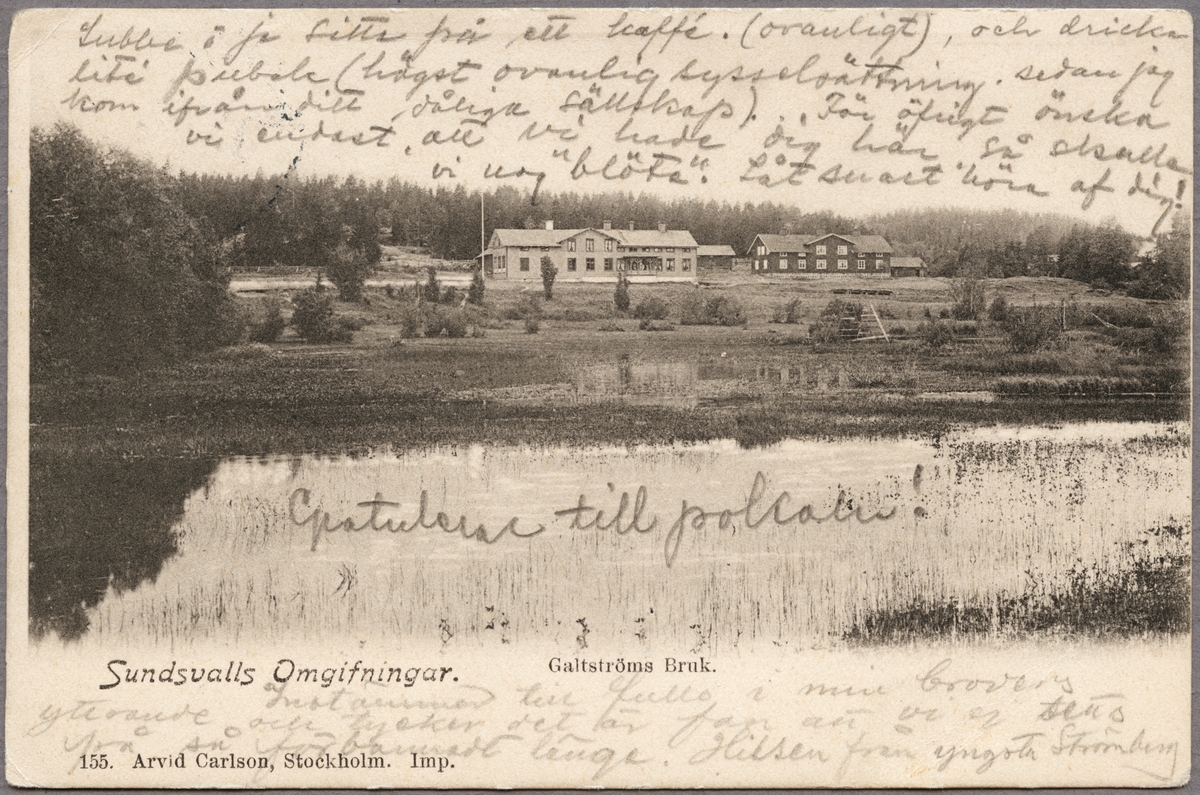 Lubbe & ja sitta på ett kaffé. (ovanligt), och dricka
lite pubel (högst ovanlig sysselsättning. sedan jag
kom ifrån ditt dåliga sällskap). För öfrigt önska
vi endast, att vi hade dig här, så skulle
vi nog "blöta". Låt snart höra af dig!
Gratulerar till polkalen!
Sundsvalls Omgifningar.
Galtströms Bruk.
Instämmer till fullo i min broders
yttrande och tycker det är fan att vi ej setts
på så förbannadt länge. Hilsen från yngsta Strömberg
155. Arvid Carlson, Stockholm. Imp.